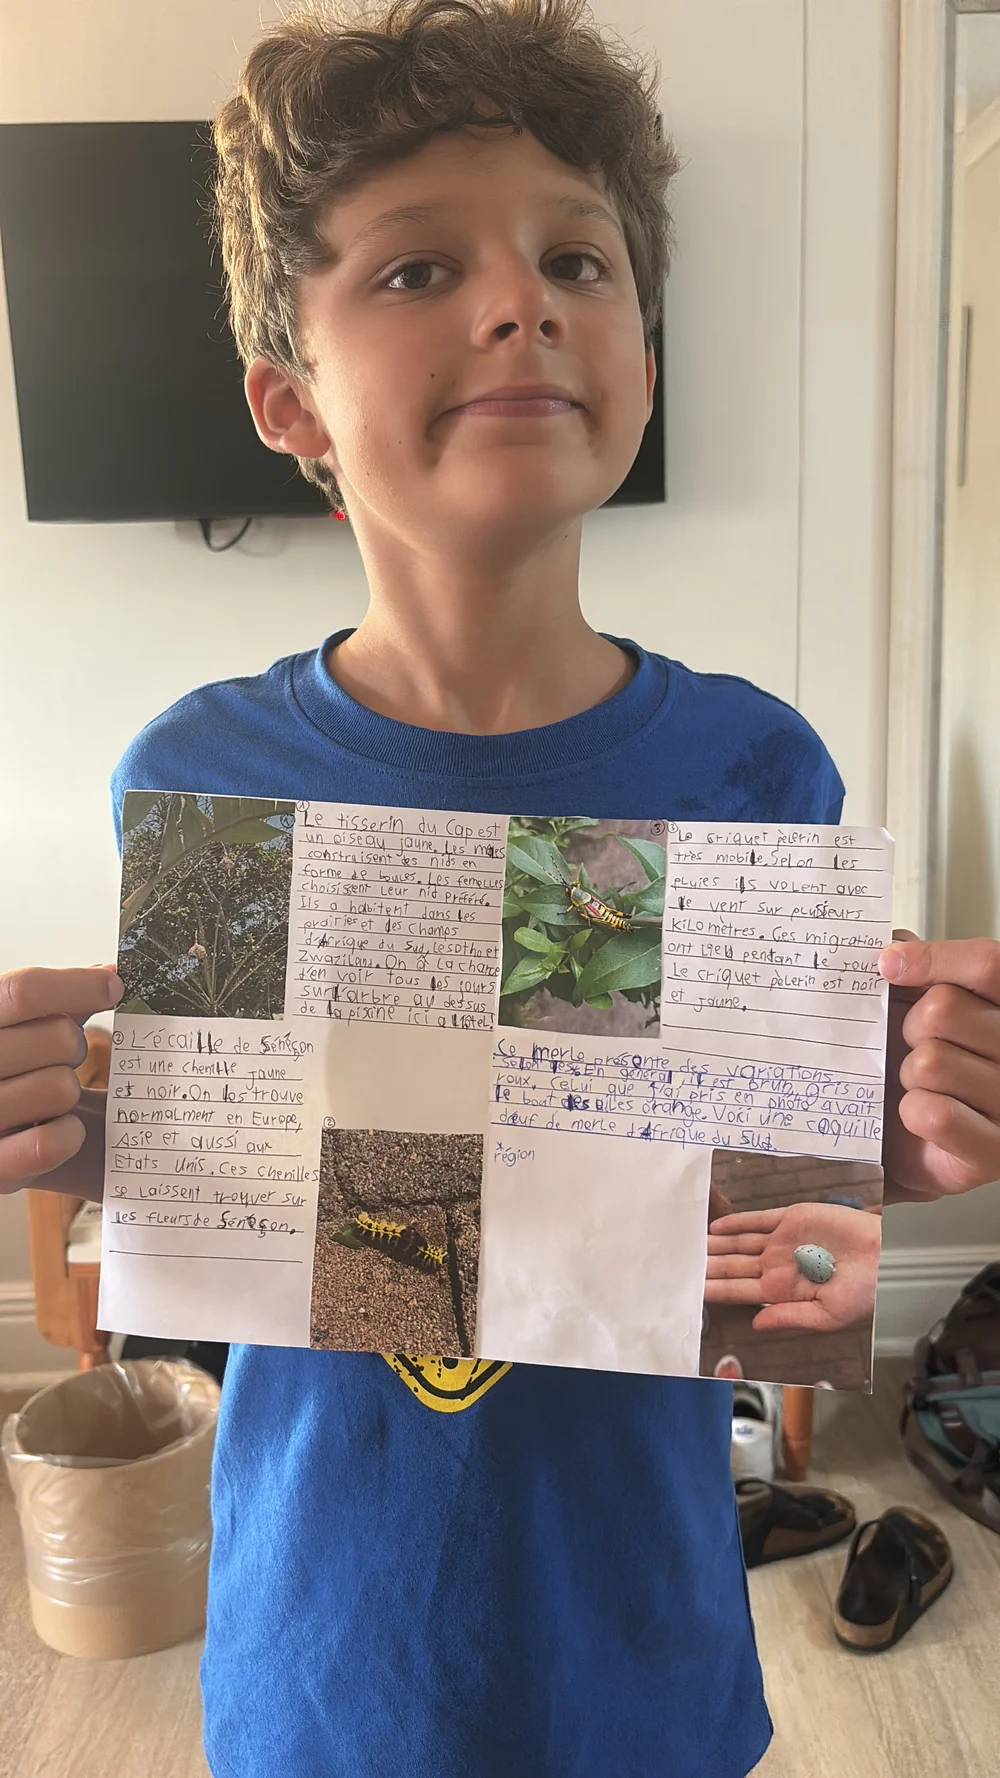 ①
①
Le tisserin du Cap est
un oiseau jaune. Les mâles
construisent des nids en
forme de boules. Les femelles
choisissent leur nid préféré.
Ils a habitent dans les
prairies et des champs
d'Afrique du Sud, Lesotho et
Zwaziland. On à la chance
d'en voir tous les jours
sur l'arbre au dessus
de la piscine ici a l'Hôtel!
② L'écaille de Séneçon
est une chenille jaune
et noir. On les trouve
normalment en Europe,
Asie et aussi aux
Etats Unis. Ces chenilles
se laissent trouver sur
les fleurs de Séneçon.
②
③
③
Le criquet pèlerin est
très mobile. Selon les
pluies ils volent avec
le vent sur plusieurs
kilomètres. Ces migration
ont lieu pendant le jour
Le criquet pèlerin est noir
et jaune.
Ce merle présente des variations
selon les* En général il est brun, gris ou
roux. Celui que j'ai pris en photo avait
le bout des ailes orange. Voici une coquille
d'œuf de merle d'Afrique du Sud.
*
région